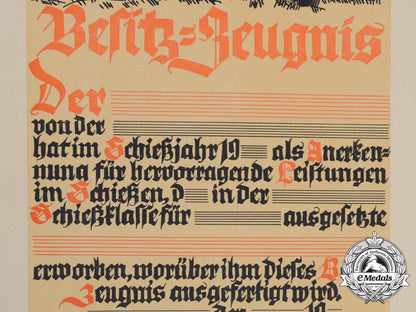 Besitz=Zeugnis
Der
von der
hat im Schießjahr 19 als Anerken-
nung für hervorragende Leistungen
im Schießen, d in der
Schießklasse für ausgesetzte
erworben, worüber ihm dieses B
Zeugnis ausgefertigt wird.
den 19
eMedals